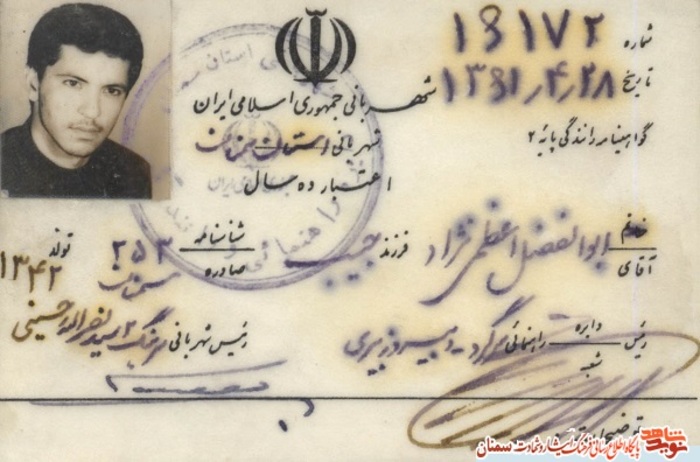 شماره ۱۶۱۷۲
تاریخ ۱۳۶۱٫۴٫۲۸
شهربانی جمهوری اسلامی ایران
گواهینامه رانندگی پایه ۲
شهربانی استان سمنان
اعتبار ده سال
خانم
آقای ابوالفضل اعظمی نژاد فرزند حبیب شناسنامه ۲۵۳ تولد ۱۳۴۲
صادره سمنان
رئیس دایره راهنمائی سرگرد - دبیر وزیری رئیس شهربانی سرهنگ ۲ سید نصرالله حسینی
شعبه
توضیحات
نوید شاهد
پایگاه اطلاع رسانی فرهنگ ایثار و شهادت سمنان